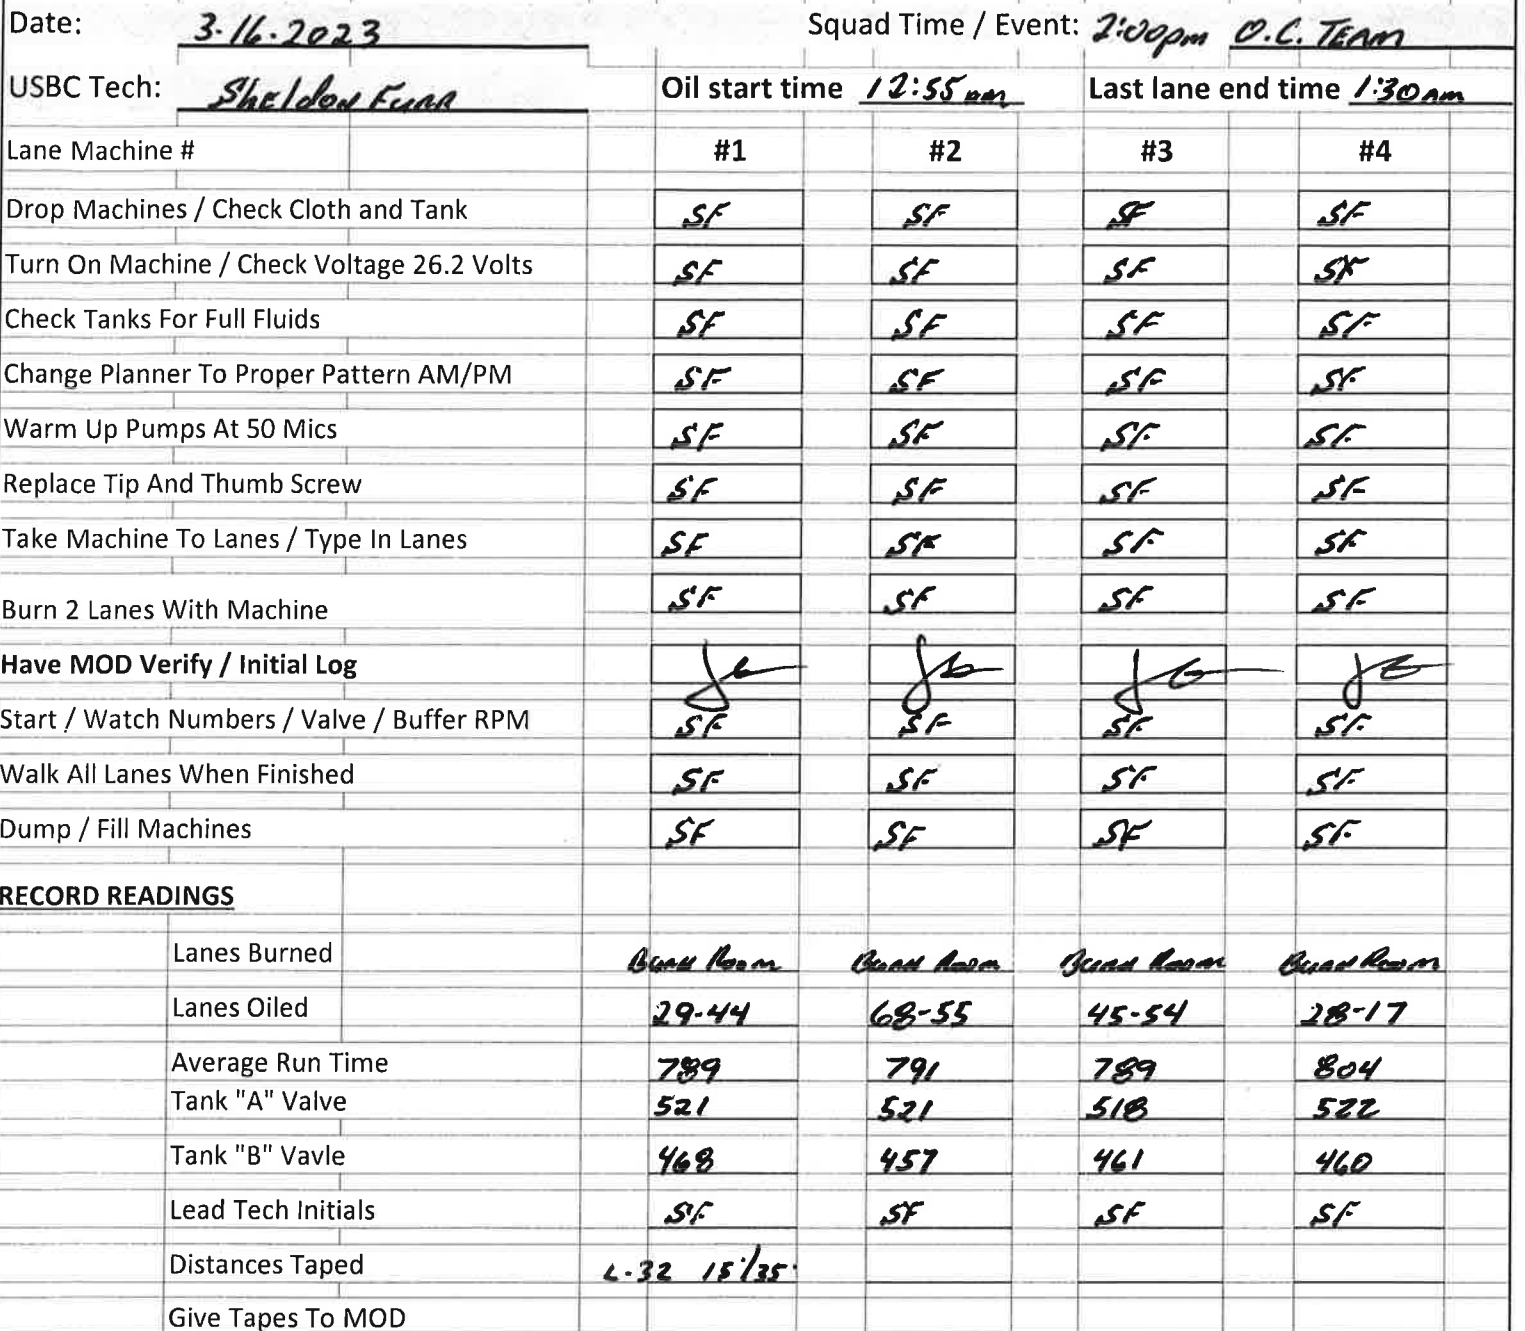 Date: 3.16.2023 Squad Time / Event: 2:00pm O.C. TEAM
USBC Tech: Sheldon Furr Oil start time 12:55 Last lane end time 1:30am
Lane Machine # #1 #2 #3 #4
Drop Machines / Check Cloth and Tank SF SF SF SF
Turn On Machine / Check Voltage 26.2 Volts SF SF SF SF
Check Tanks For Full Fluids SF SF SF SF
Change Planner To Proper Pattern AM/PM SF SF SF SF
Warm Up Pumps At 50 Mics SF SF SF SF
Replace Tip And Thumb Screw SF SF SF SF
Take Machine To Lanes / Type In Lanes SF SF SF SF
Burn 2 Lanes With Machine SF SF SF SF
Have MOD Verify / Initial Log
Start / Watch Numbers / Valve / Buffer RPM SF SF SF SF
Walk All Lanes When Finished SF SF SF SF
Dump / Fill Machines SF SF SF SF
RECORD READINGS
Lanes Burned Burn Room Burn Room Burn Room Burn Room
Lanes Oiled 29-44 68-55 45-54 28-17
Average Run Time 789 791 789 804
Tank "A" Valve 521 521 518 522
Tank "B" Vavle 468 457 461 460
Lead Tech Initials SF SF SF SF
Distances Taped L-32 15'/35'
Give Tapes To MOD